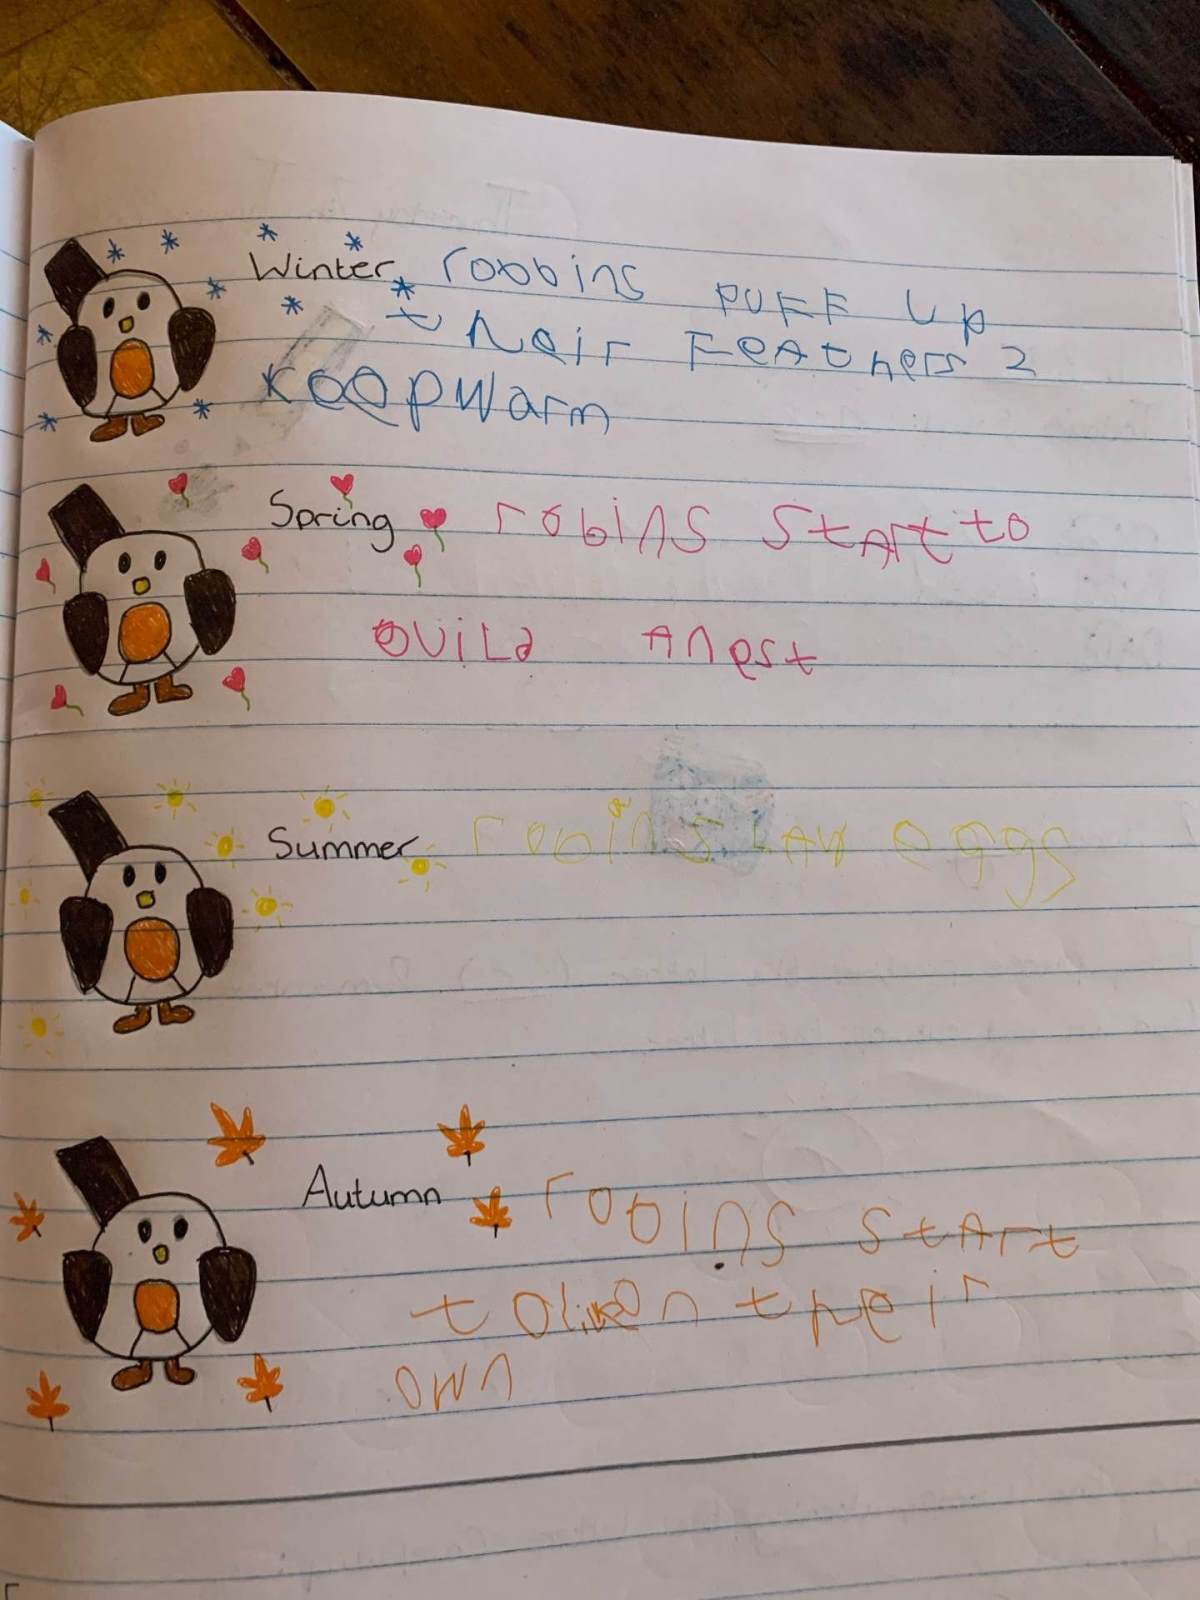 Winter robbins PUFF Up
their FeAthers 2
Keep Warm
Spring robins StArt to
build A nest
Summer robins LAy eggs
Autumn robins StArt
to live on their
own